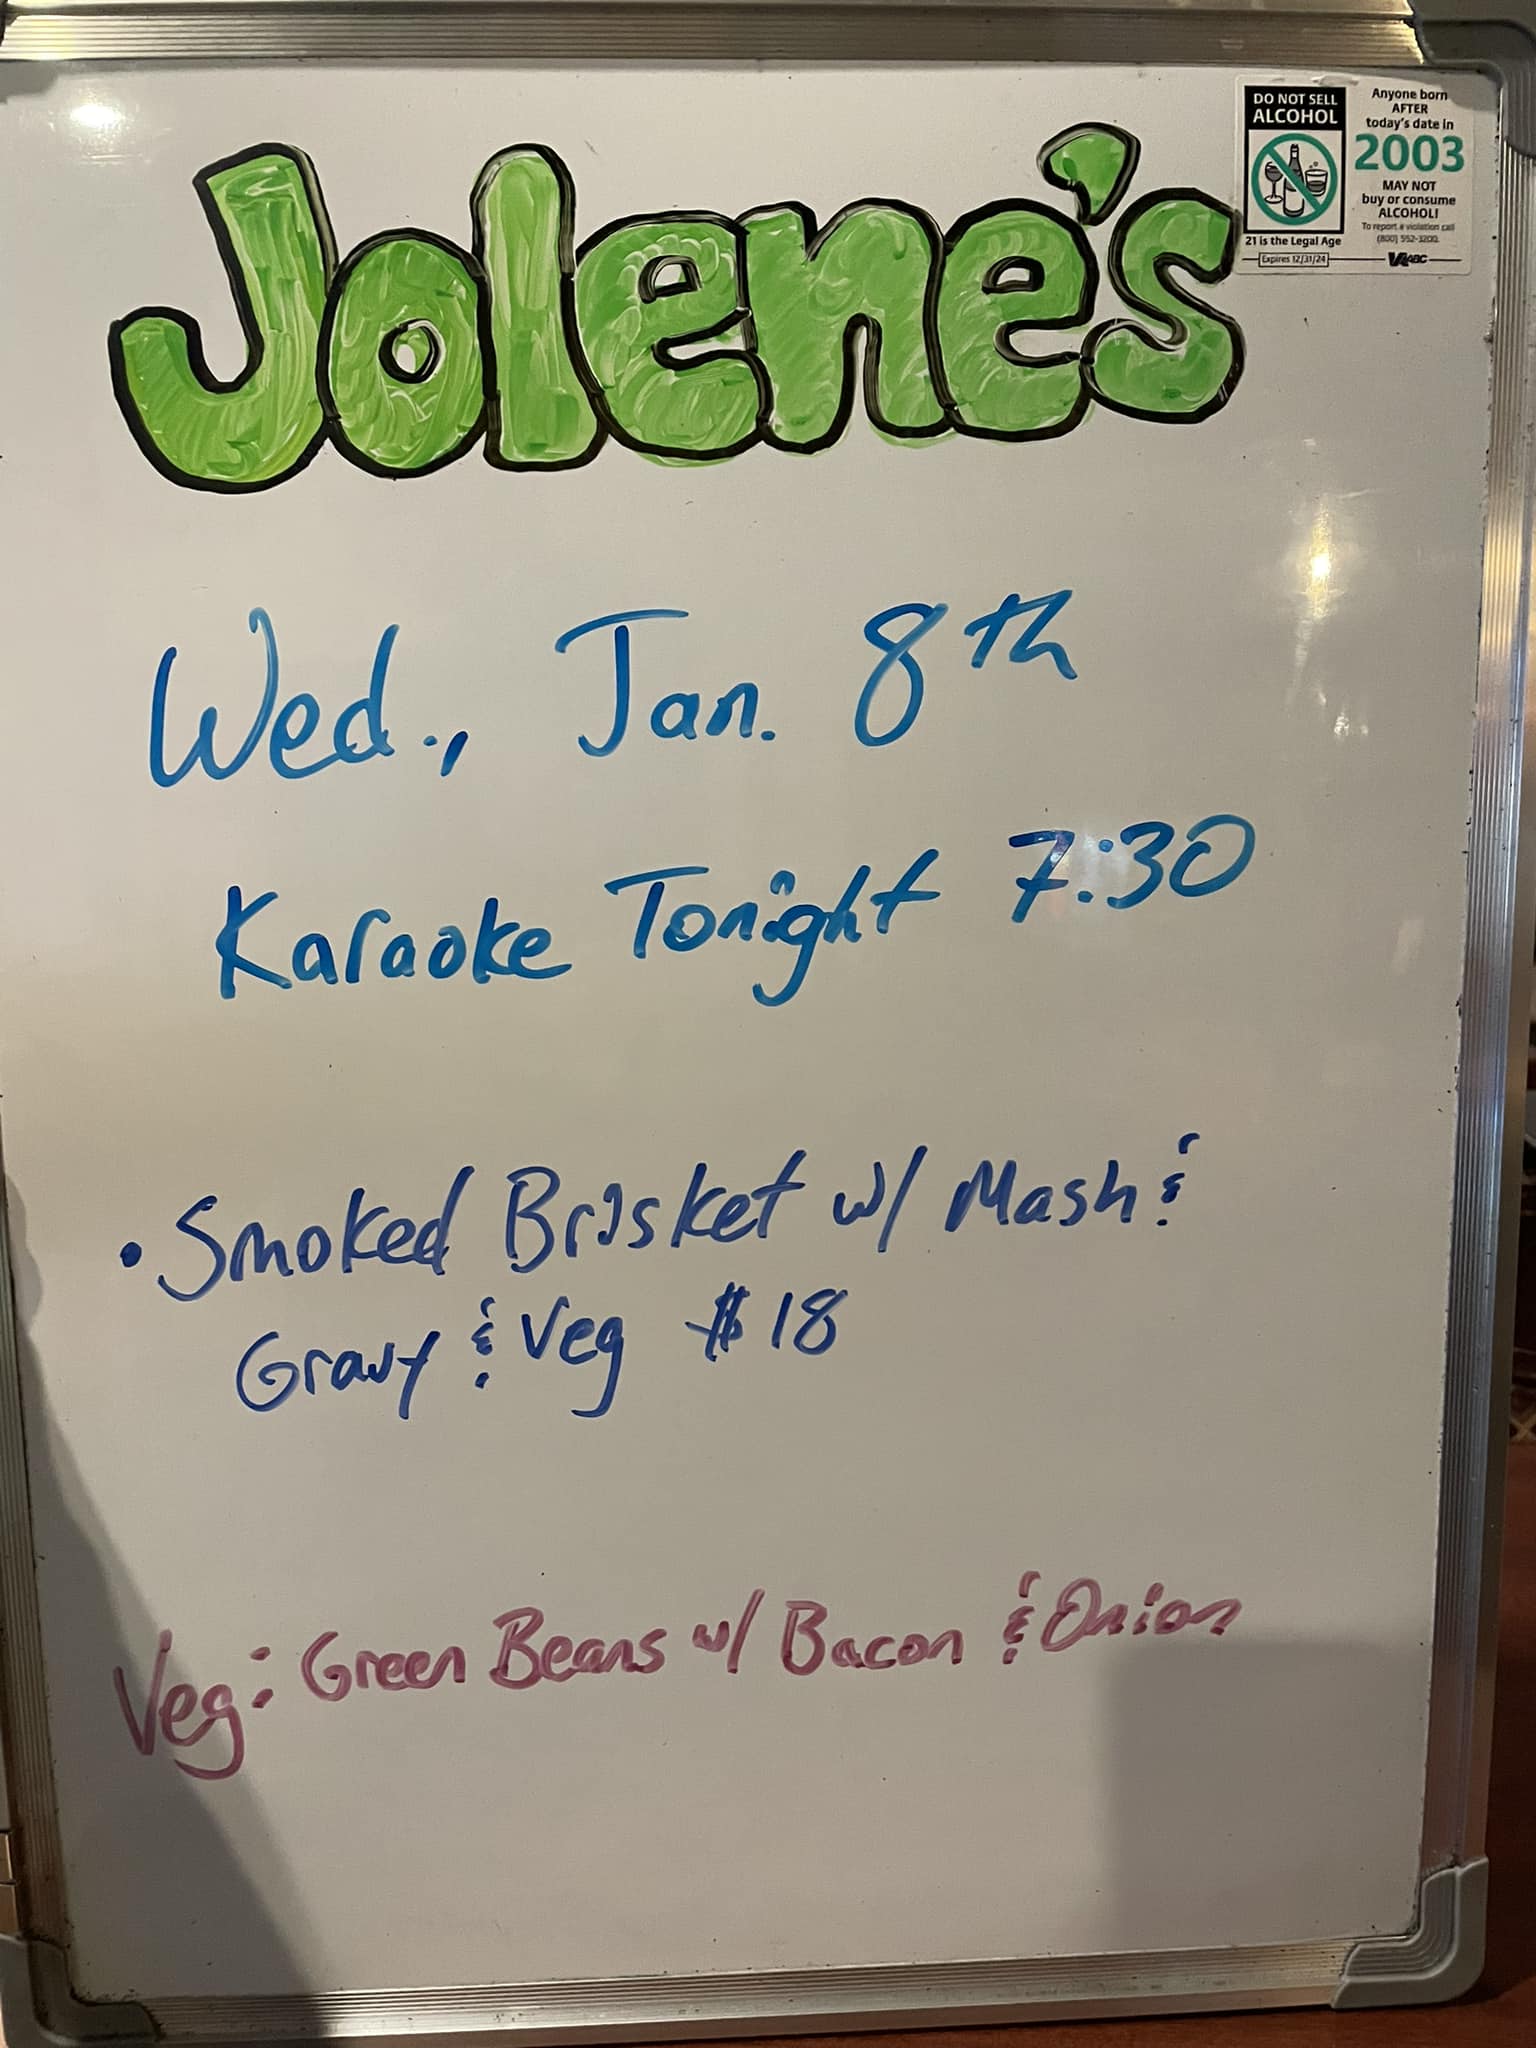 Jolene's
DO NOT SELL
ALCOHOL
21 is the Legal Age
Expires 12/31/24
Anyone born
AFTER
today's date in
2003
MAY NOT
buy or consume
ALCOHOL!
To report a violation call
(800) 552-3200.
VA ABC
Wed., Jan. 8th
Karaoke Tonight 7:30
• Smoked Brisket w/ Mash &
Gravy & Veg $18
Veg: Green Beans w/ Bacon & Onion